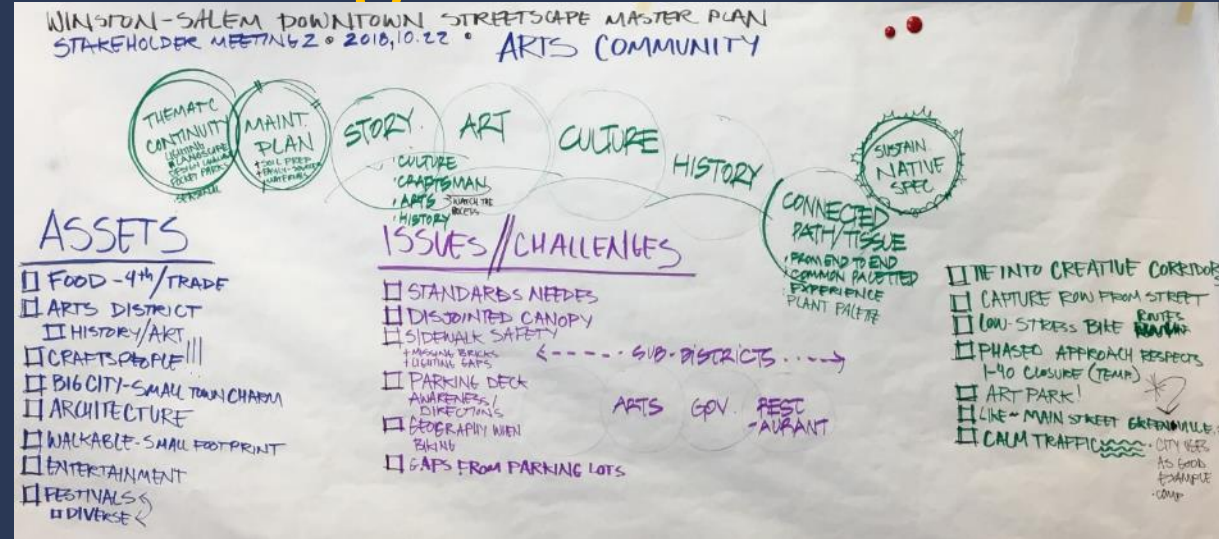 WINSTON-SALEM DOWNTOWN STREETSCAPE MASTER PLAN
STAKEHOLDER MEETING 2 • 2018.10.22 •
ARTS COMMUNITY
THEMATC
CONTINUITY
LIGHTING
LANDSCAPE
DESIGN
POCKET PARKS
SEASONAL
MAINT.
PLAN
+ SOIL PREP
MATERIALS
STORY
• CULTURE
• CRAFTSMAN
• ARTS
WATCH THE
PROCESS
• HISTORY
ART
CULTURE
HISTORY
CONNECTED
PATH/TISSUE
• FROM END TO END
• COMMON PALETTED
• EXPERIENCE
PLANT PALETTE
SUSTAIN
NATIVE
SPEC
ASSETS
FOOD - 4th/TRADE
ARTS DISTRICT
HISTORY/ART
CRAFTSPEOPLE!!!
BIG CITY-SMALL TOWN CHARM
ARCHITECTURE
WALKABLE-SMALL FOOTPRINT
ENTERTAINMENT
FESTIVALS
DIVERSE
ISSUES//CHALLENGES
STANDARDS NEEDES
DISJOINTED CANOPY
SIDEWALK SAFETY
+ MISSING BRICKS
+ LIGHTING GAPS
PARKING DECK
AWARENESS/
DIRECTIONS
GEOGRAPHY WHEN
BIKING
GAPS FROM PARKING LOTS
SUB-DISTRICTS
ARTS
GOV.
REST
-AURANT
TIE INTO CREATIVE CORRIDORS
CAPTURE ROW FROM STREET
LOW-STRESS BIKE ROUTES
PHASED APPROACH RESPECTS
I-40 CLOSURE (TEMP)
ART PARK!
LIKE ~ MAIN STREET GREENVILLE
CALM TRAFFIC
• CITY USES
AS GOOD
EXAMPLE
• COMP